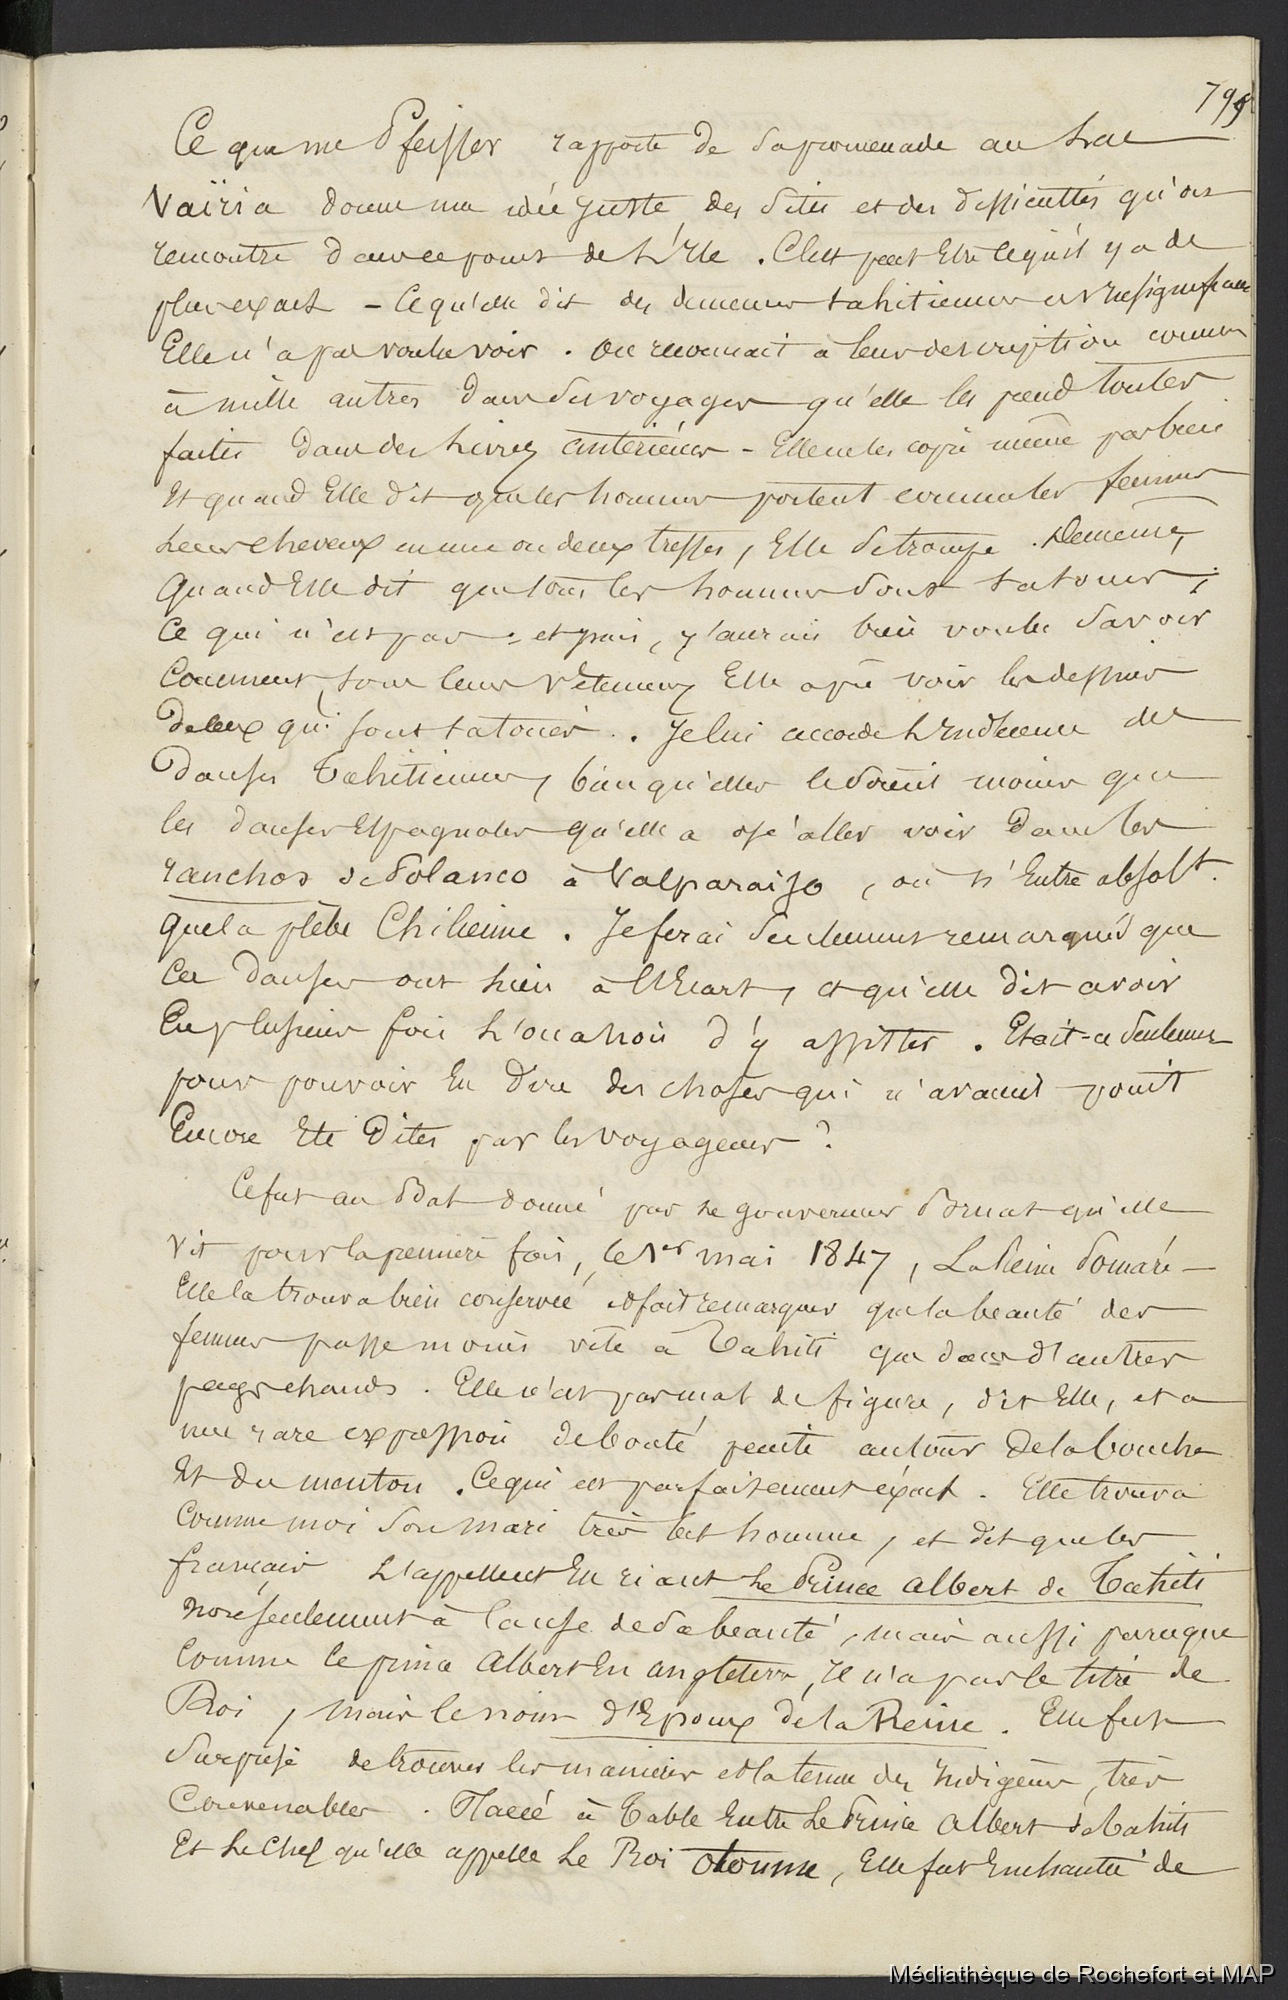 795
Ce que me Pfeiffer rapporte de sa promenade au Lac
Vaïria donne une idée juste des sites et des difficultés qu'on
rencontre dans ce pourt de L'Ile. C'est peut Etre ce qu'il y a de
plus exact - Ce qu'elle dit des demeures tahitiennes est insignifiant
Elle n'a pas voulu voir. On reconnait à leur description comme
à mille autres dans ses voyages qu'elle les prend toutes
faites dans des Livres antérieurs - Elle ne les copie même pas bien
Et quand Elle dit que les hommes portent comme les femmes
Leurs cheveux en une ou deux tresses, Elle se trompe. De même,
Quand Elle dit que tous les hommes sont tatoués,
Ce qui n'est pas - et puis, j'aurais bien voulu savoir
Comment, sous leurs vêtements Elle a pu voir les dessins
de ceux qui sont tatoués. Je lui accorde L'Indécence des
Danses Tahitiennes, bien qu'elles le soient moins que
les danses Espagnoles qu'elle a osé aller voir dans les
ranchos de Polanco à Valparaiso, où n'Entre absolt.
que la plèbe Chilienne. Je ferai seulement remarquer que
Ces danses ont lieu à l'Ecart, et qu'elle dit avoir
Eu plusieurs fois L'occasion d'y assister. Etait-ce seulement
pour pouvoir En dire des choses qui n'avaient point
Encore Eté Dites par les voyageurs ?
Ce fut au Bal donné par Le gouverneur Bruat qu'elle
vit pour la première fois, le 1er mai 1847, La Reine Pomaré -
Elle la trouva bien conservée et fait remarquer que la beauté des
femmes passe moins vite à Tahiti que dans d'autres
pays chauds. Elle n'est pas mal de figure, dit Elle, et a
une rare expression de bonté peinte autour de la bouche
Et du menton. Ce qui est parfaitement éxact. Elle trouva
Comme moi son mari très bel homme, et dit que les
français L'appellent En riant Le Prince Albert de Tahiti
non seulement à Cause de sa beauté, mais aussi parceque
Comme le prince Albert En angleterre, Il n'a pas le titre de
Roi, mais le nom d'Epoux de la Reine. Elle fut
Surprise de trouver les manières et la tenue des Indigènes, très
Convenables. Placée à Table Entre Le Prince Albert de Tahiti
Et Le Chef qu'elle appelle Le Roi Otoume, Elle fut Enchantée de
Médiathèque de Rochefort et MAP